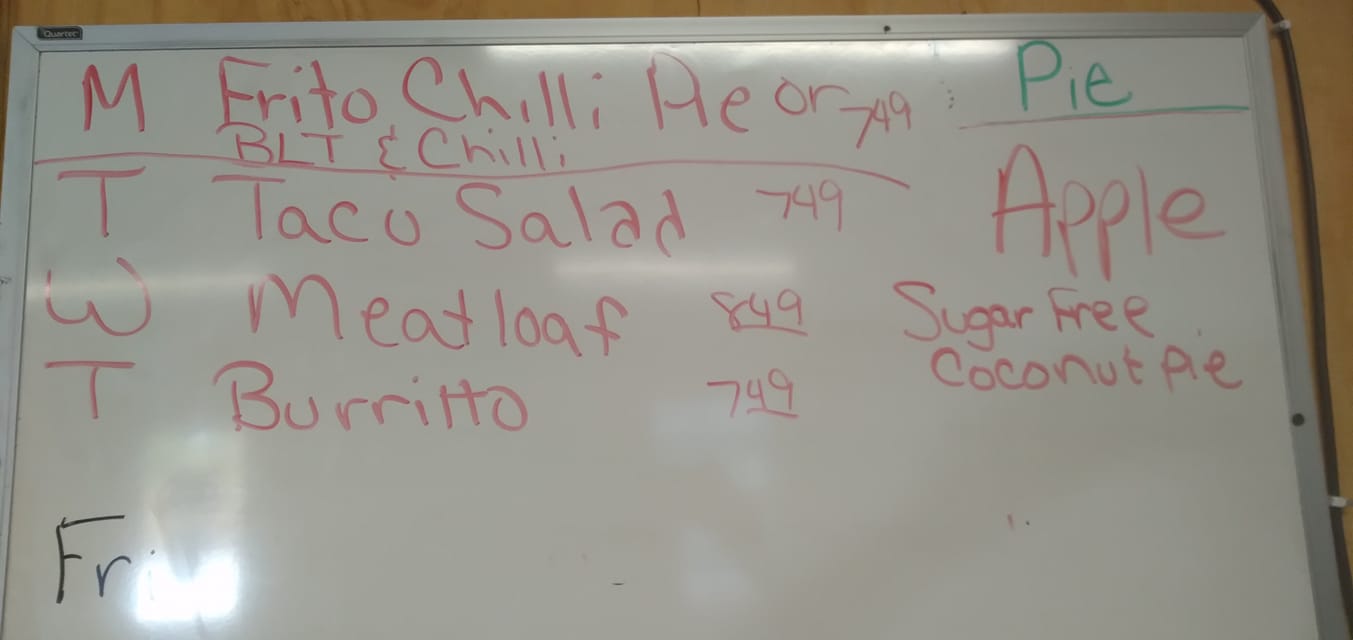 Quartet
M Frito Chilli Pie or 749
BLT & Chilli
T Taco Salad 749
W Meatloaf 849
T Burritto 749
Fri
Pie
Apple
Sugar Free
Coconut Pie